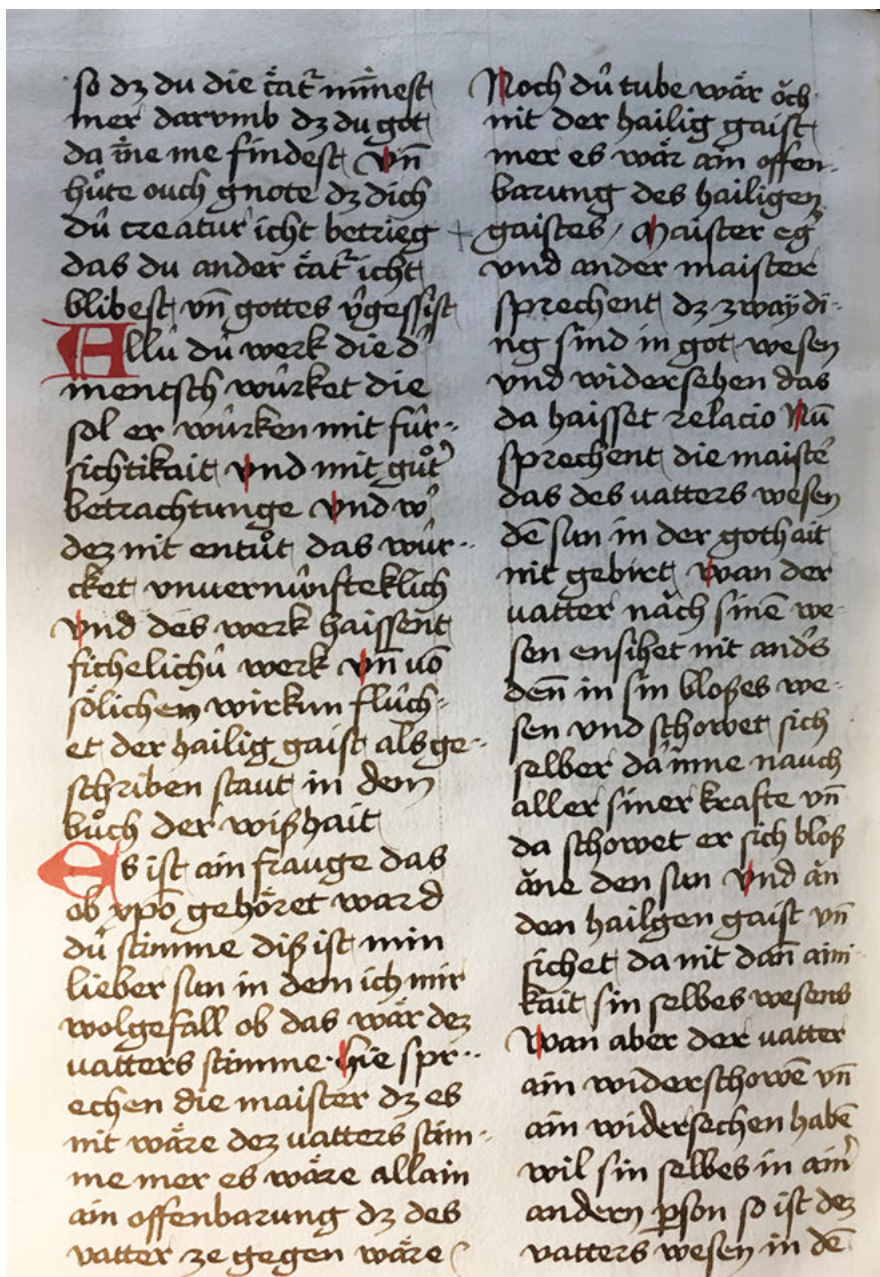 so dz du die tǎt mīnest
mer darvmb dz du got
da īne me findest vn̄
hůte ouch gnote dz dich
dû creatur icht betrieg
das du ander tǎt icht
blibest vn̄ gottes v̓gessist
Allû dû werk die d̓
mentsch wûrket die
sol er wûrken mit fûr-
sichtikait vnd mit gůt̓
betrachtunge vnd w̓
dez nit entůt das wûr-
cket vnuernûnfteklich
vnd des werk haissent
fichelichû werk vn̄ uō
sölichem wirkun flûch-
et der hailig gaist als ge-
schriben staut in dem
bůch der wißhait
Es ist ain frauge das
ob xpō gehöret ward
dû stimme diß ist min
lieber sun in dem ich mir
wolgefall ob das wär dez
uatters stimme· hie spr-
echen die maister dz es
nit wäre dez uatters stim-
me mer es wäre allain
ain offenbarung dz des
vatter ze gegen wäre
Noch dû tube wär öch
nit der hailig gaist
mer es wär ain offen-
barung des hailigen
gaistes / Maister eg̓
vnd ander maister
sprechent dz zwaÿ di-
ng sind in got wesen
vnd widersehen das
da haisset relacio Nū
sprechent die maiste̓
das des uatters wesen
dē sun in der gothait
nit gebirt wan der
uatter nǎch sinē we-
sen ensihet nit and̓s
den̄ in sin bloßes we-
sen vnd schowet sich
selber da īnne nauch
aller siner krafte vn̄
da schowet er sich bloß
ǎne den sun Vnd ǎn
den hailgen gaist vn̄
sichet da nit dan̄ aini-
kait sin selbes wesens
Wan aber der uatter
ain widerschowē vn̄
ain widersechen habē
wil sin selbes in ain̓
andern p̱son so ist dez
vatters wesen in dē